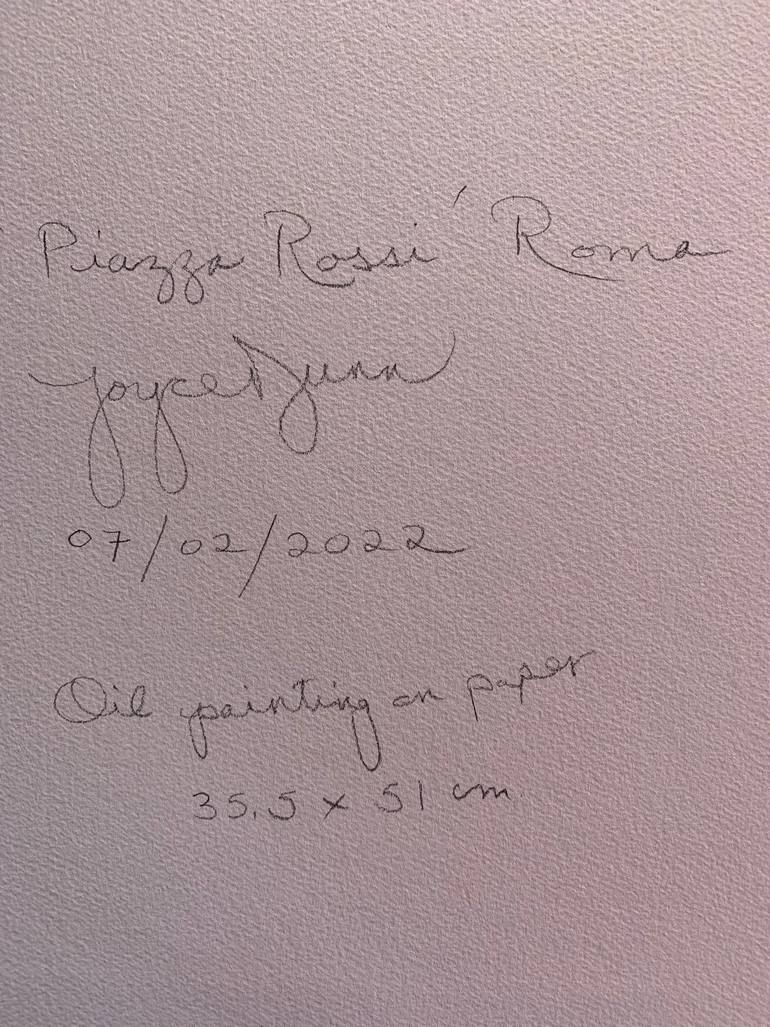 'Piazza Rossi' Roma
Joyce Dunn
07/02/2022
Oil painting on paper
35.5 x 51 cm